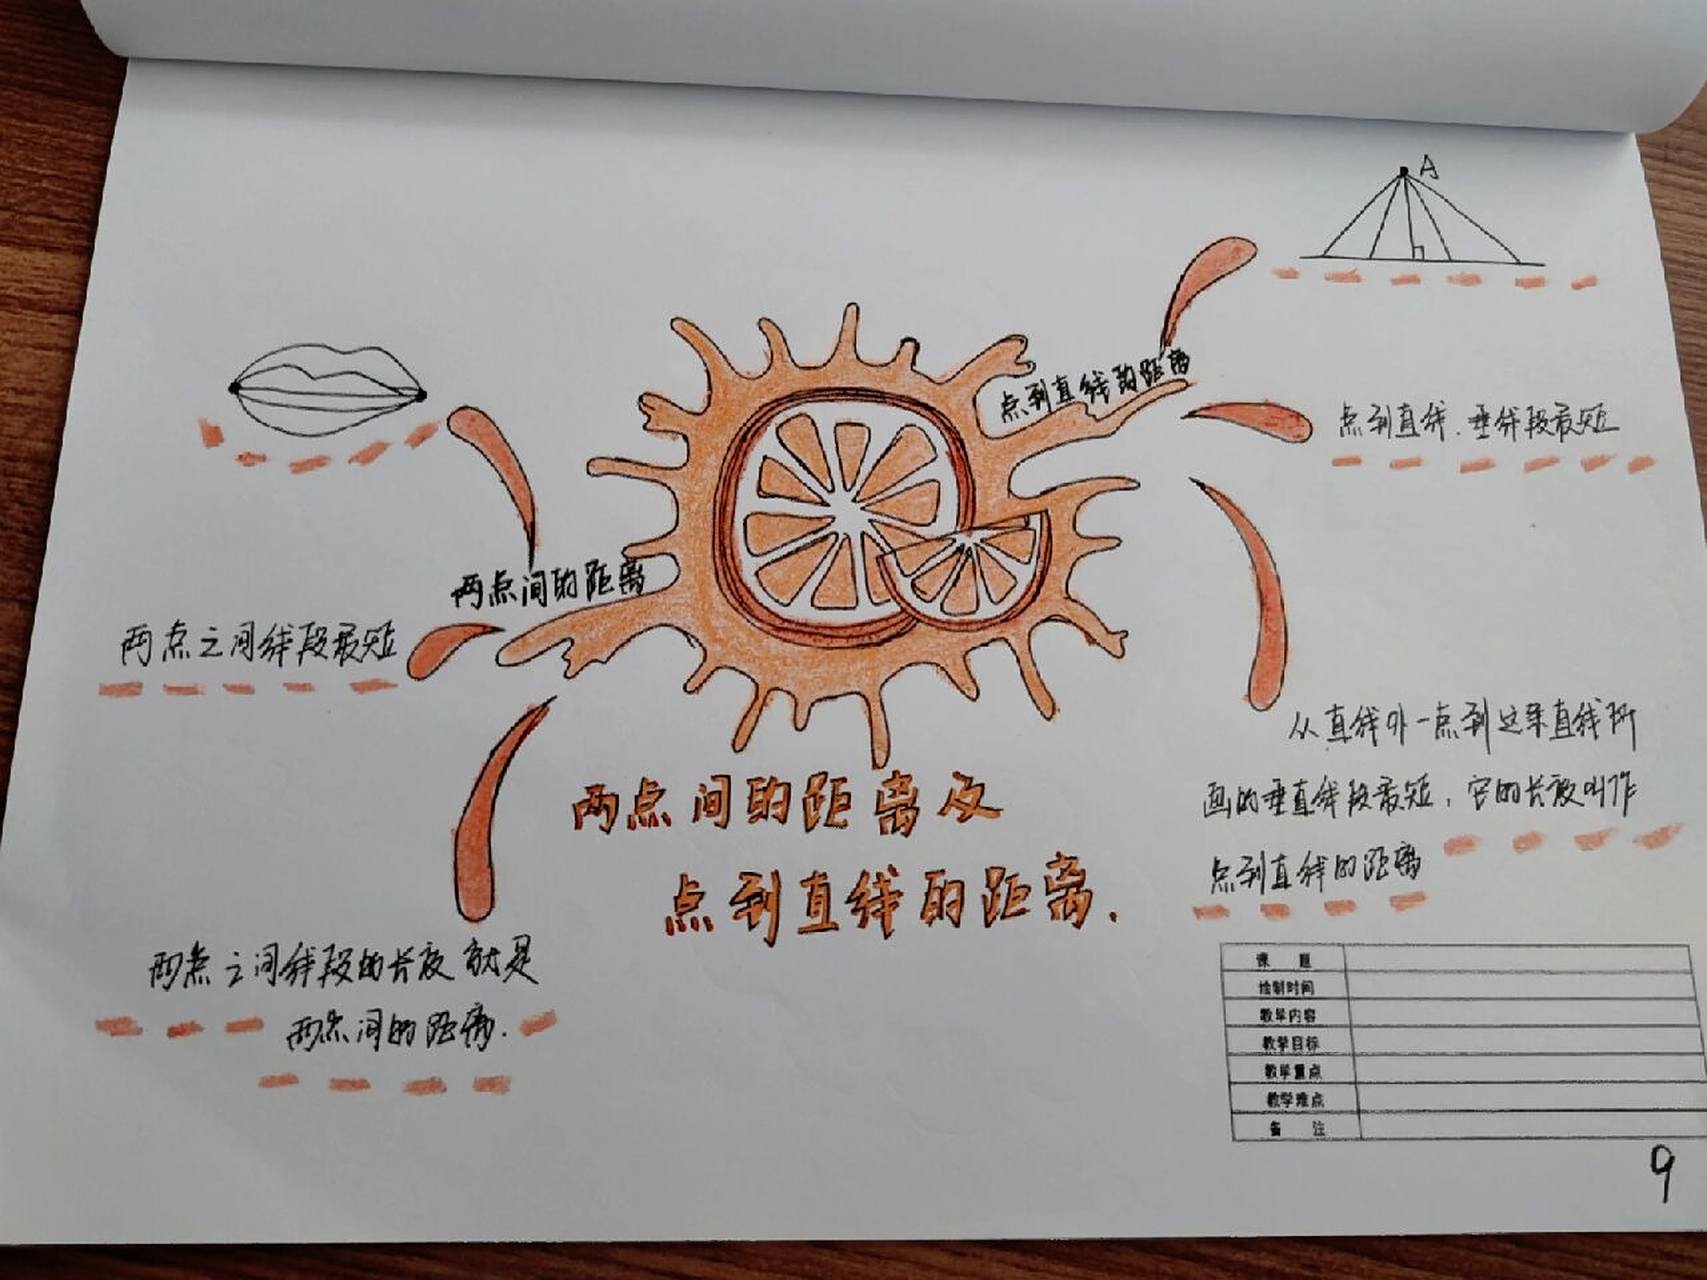 A
点到直线的距离
点到直线.垂线段最短
两点间的距离
两点之间线段最短
从直线外一点到这条直线所
画的垂直线段最短，它的长度叫作
点到直线的距离
两点间的距离及
点到直线的距离.
两点之间线段的长度就是
两点间的距离.
课 题
绘制时间
教学内容
教学目标
教学重点
教学难点
备 注
9